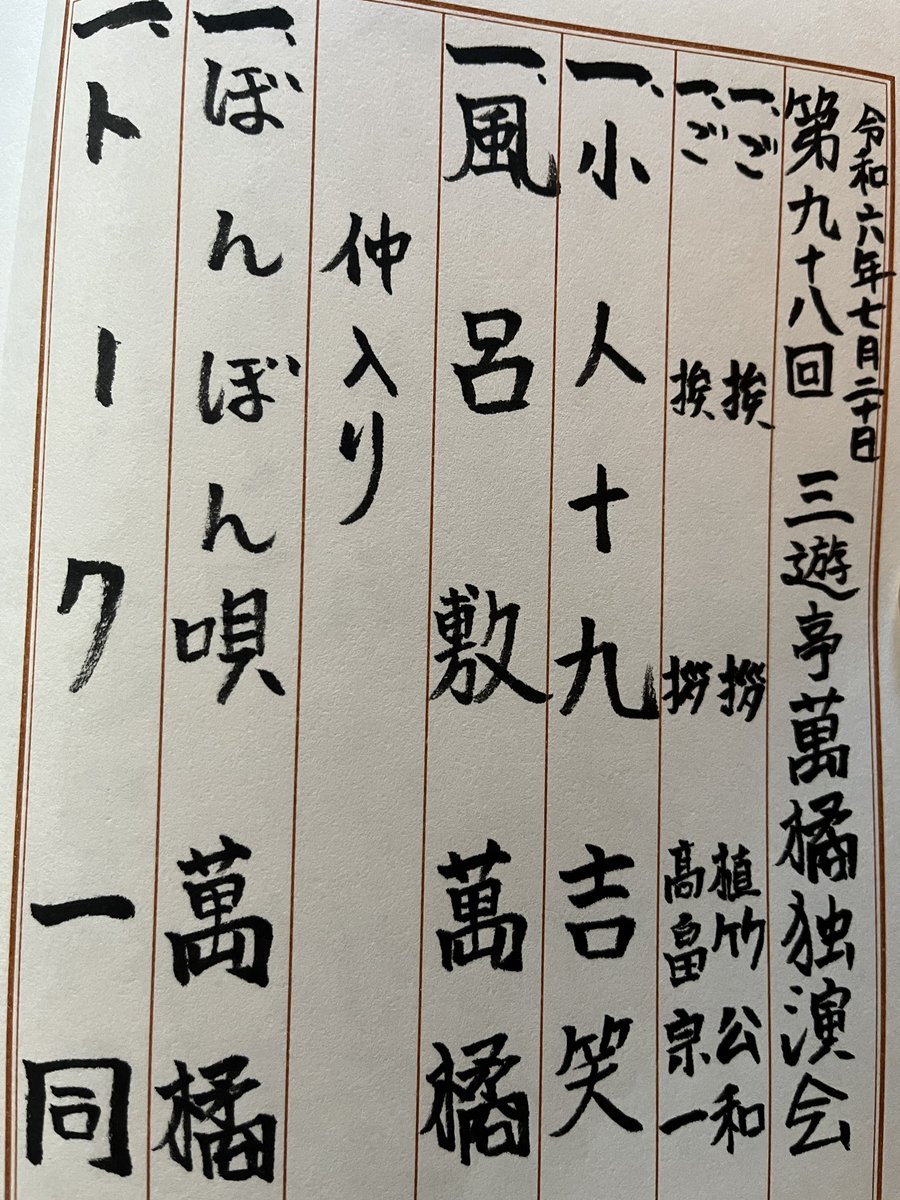 令和六年七月二十日
第九十八回 三遊亭萬橘独演会
一、ご挨拶 植竹公和
一、ご挨拶 高畠宗一
一、小人十九 吉笑
一、風呂敷 萬橘
仲入り
一、ぼんぼん唄 萬橘
一、トーク 一同